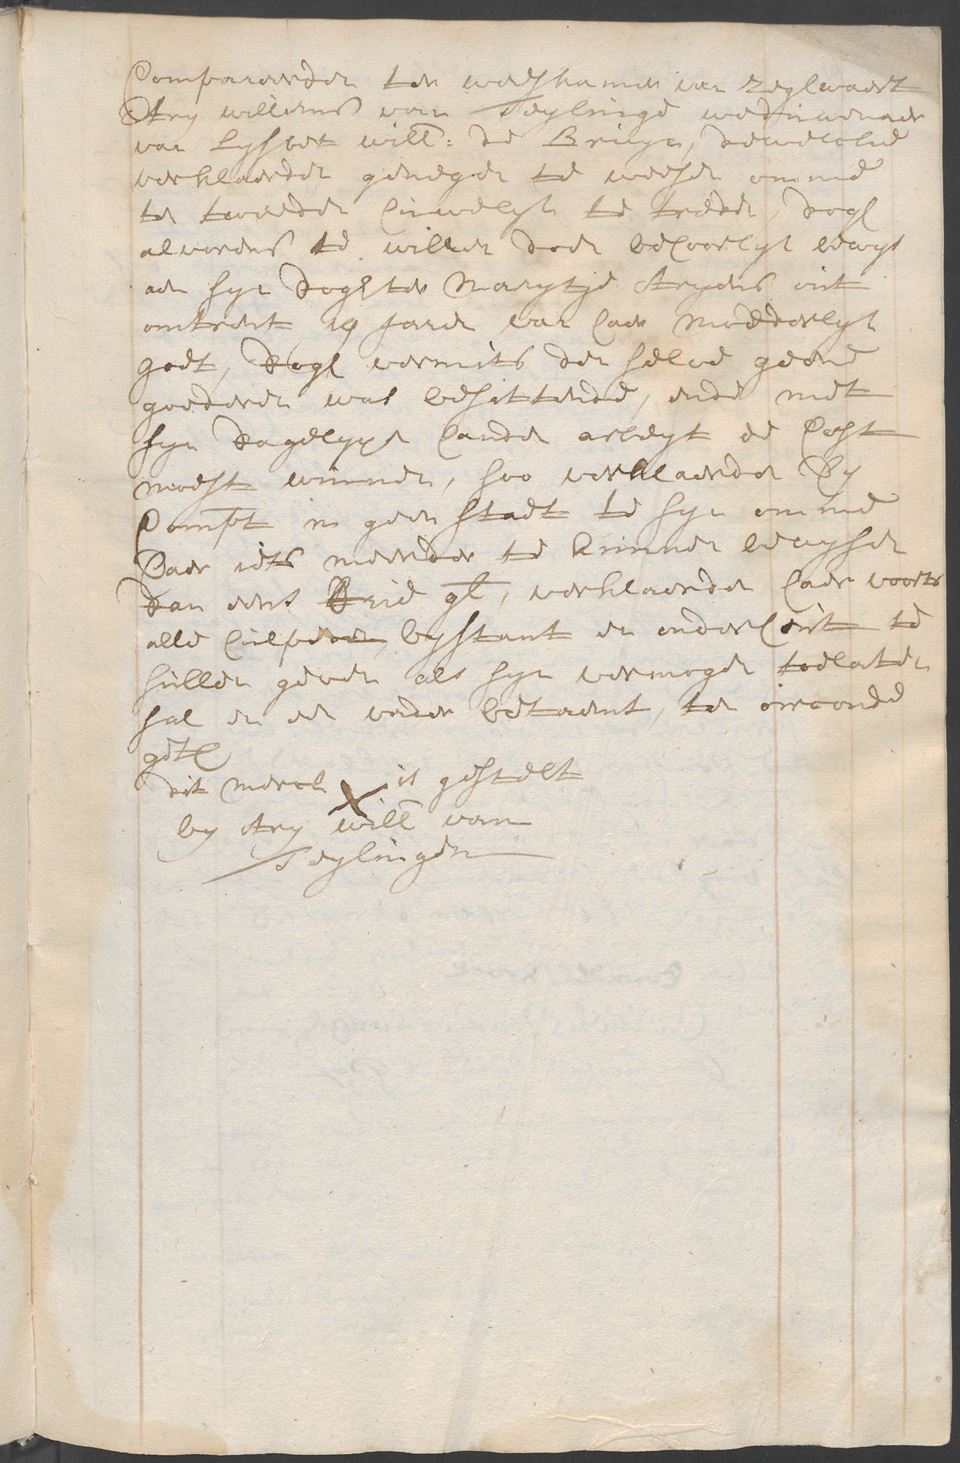 Compareerden ter weeskamer van Zegwaert
Ary willems van Teylinge weduwenaer
van Lysbet will: de Bruyn, dewelcke
verklaerden genegen te weesen omme
ten tweeden huwelyk te treden, dogh
alvorens te willen doen behoorlyk bewys
aen syn doghter Marytje Aryens out
omtrent 19 Jaren van haer moederlyk
goet, dogh vermits den selve geene
goederen was besittende, ende met
syn dagelyxe handen arbeyt de kost
moest winnen, soo verklaerden hy
Compt in geen staet te syn omme
haer iets meerder te kunnen bewysen
dan eens drie gl, verklaerden haer voorts
alle hulpe en bystant en onderhout te
sullen geven als syn vermogen toelaten
sal en een vader betaemt, ten oirconde
get
dit merck X is gestelt
by Ary will van
Teylingen